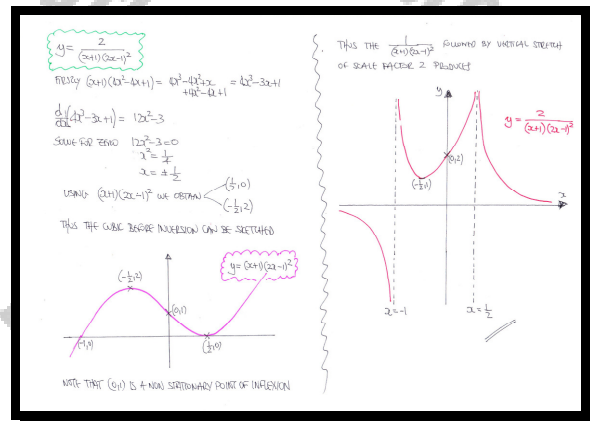 y = 2/((x+1)(2x-1)²)
FIRSTLY (x+1)(4x²-4x+1) = 4x³-4x²+x = 4x³-3x+1
+4x²-4x+1
d/dx(4x³-3x+1) = 12x²-3
SOLVE FOR ZERO 12x²-3=0
x² = 1/4
x = ±1/2
USING (x+1)(2x-1)² WE OBTAIN (1/2,0)
(-1/2,2)
THUS THE CUBIC BEFORE INVERSION CAN BE SKETCHED
y = (x+1)(2x-1)²
(-1/2,2)
(0,1)
(-1,0)
(1/2,0)
NOTE THAT (0,1) IS A NON STATIONARY POINT OF INFLEXION
THUS THE 1/((x+1)(2x-1)²) FOLLOWED BY VERTICAL STRETCH
OF SCALE FACTOR 2 PRODUCES
y
y = 2/((x+1)(2x-1)²)
(0,2)
(-1/2,1)
x
x=-1
x=1/2